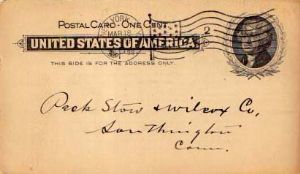 POSTAL CARD - ONE CENT.
YORK
MAR 18
2
UNITED STATES OF AMERICA.
THIS SIDE IS FOR THE ADDRESS ONLY.
Peck Stow & Wilcox Co,
Southington
Conn.